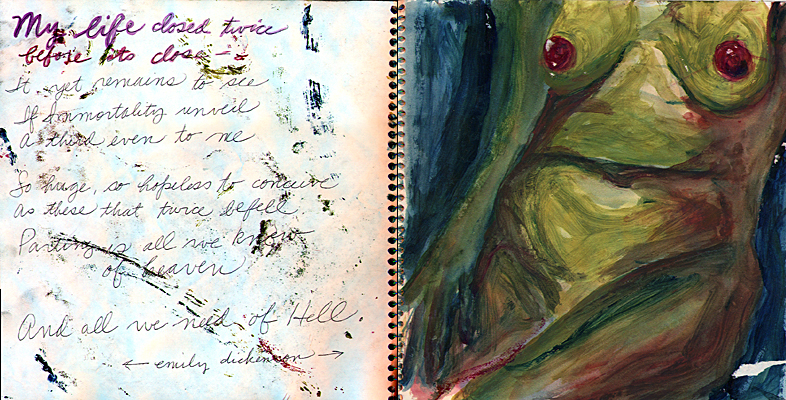 My life closed twice
before its close —
It yet remains to see
If Immortality unveil
a third even to me
So huge, so hopeless to conceive
as these that twice befell
Parting is all we knew
of heaven
And all we need of Hell.
← emily dickenson →